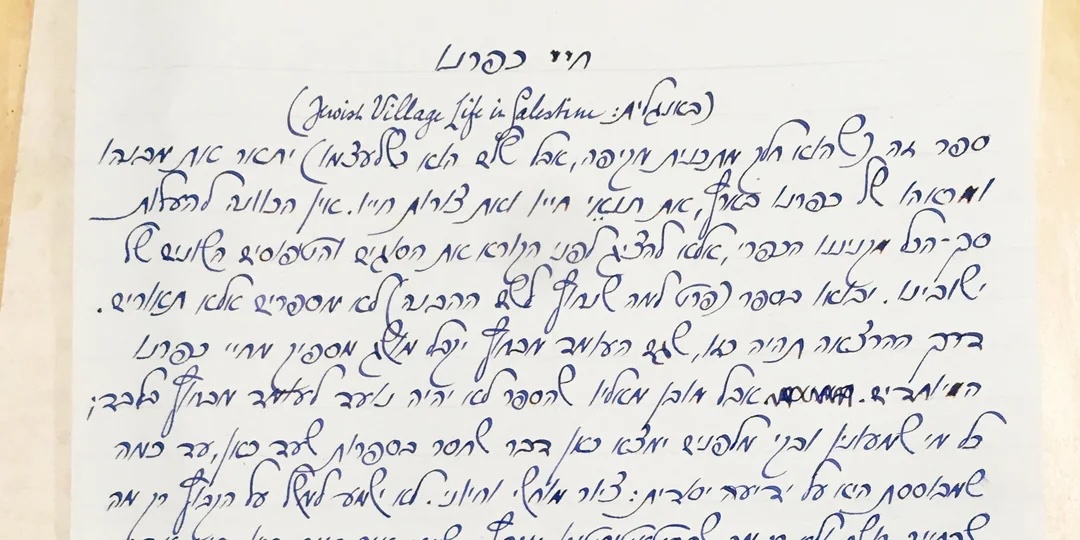 חיי כפרנו
(באנגלית: Jewish Village Life in Palestine)
ספר זה (שהוא חלק מתכנית מקיפה, אבל שלם הוא כשלעצמו) יתאר את מבנהו
ומראהו של כפרנו בארץ, את תנאי חייו ואת צורות חייו. אין הכוונה להעלות
סך-הכל מקניננו הכפרי, אלא להציג לפני הקורא את הסוגים והטפוסים השונים של
ישובינו. יבואו בספר (פרט למה שנחוץ לשם ההבנה) לא מספרים אלא תאורים.
דרך ההרצאה תהיה כזו, שגם העומד מבחוץ יקבל מושג מספיק מחיי כפרנו
המיוחדים. אבל מובן מאליו שהספר לא יהיה נועד לעומד מבחוץ בלבד;
כל מי שמעונין ובקי מלפנים ימצא כאן דבר שחסר בספרות שעד כאן, עד כמה
שמבוססת היא על ידיעה יסודית: ציור מוחשי וחיוני. לא ישמע למשל על הקבוץ רק מה